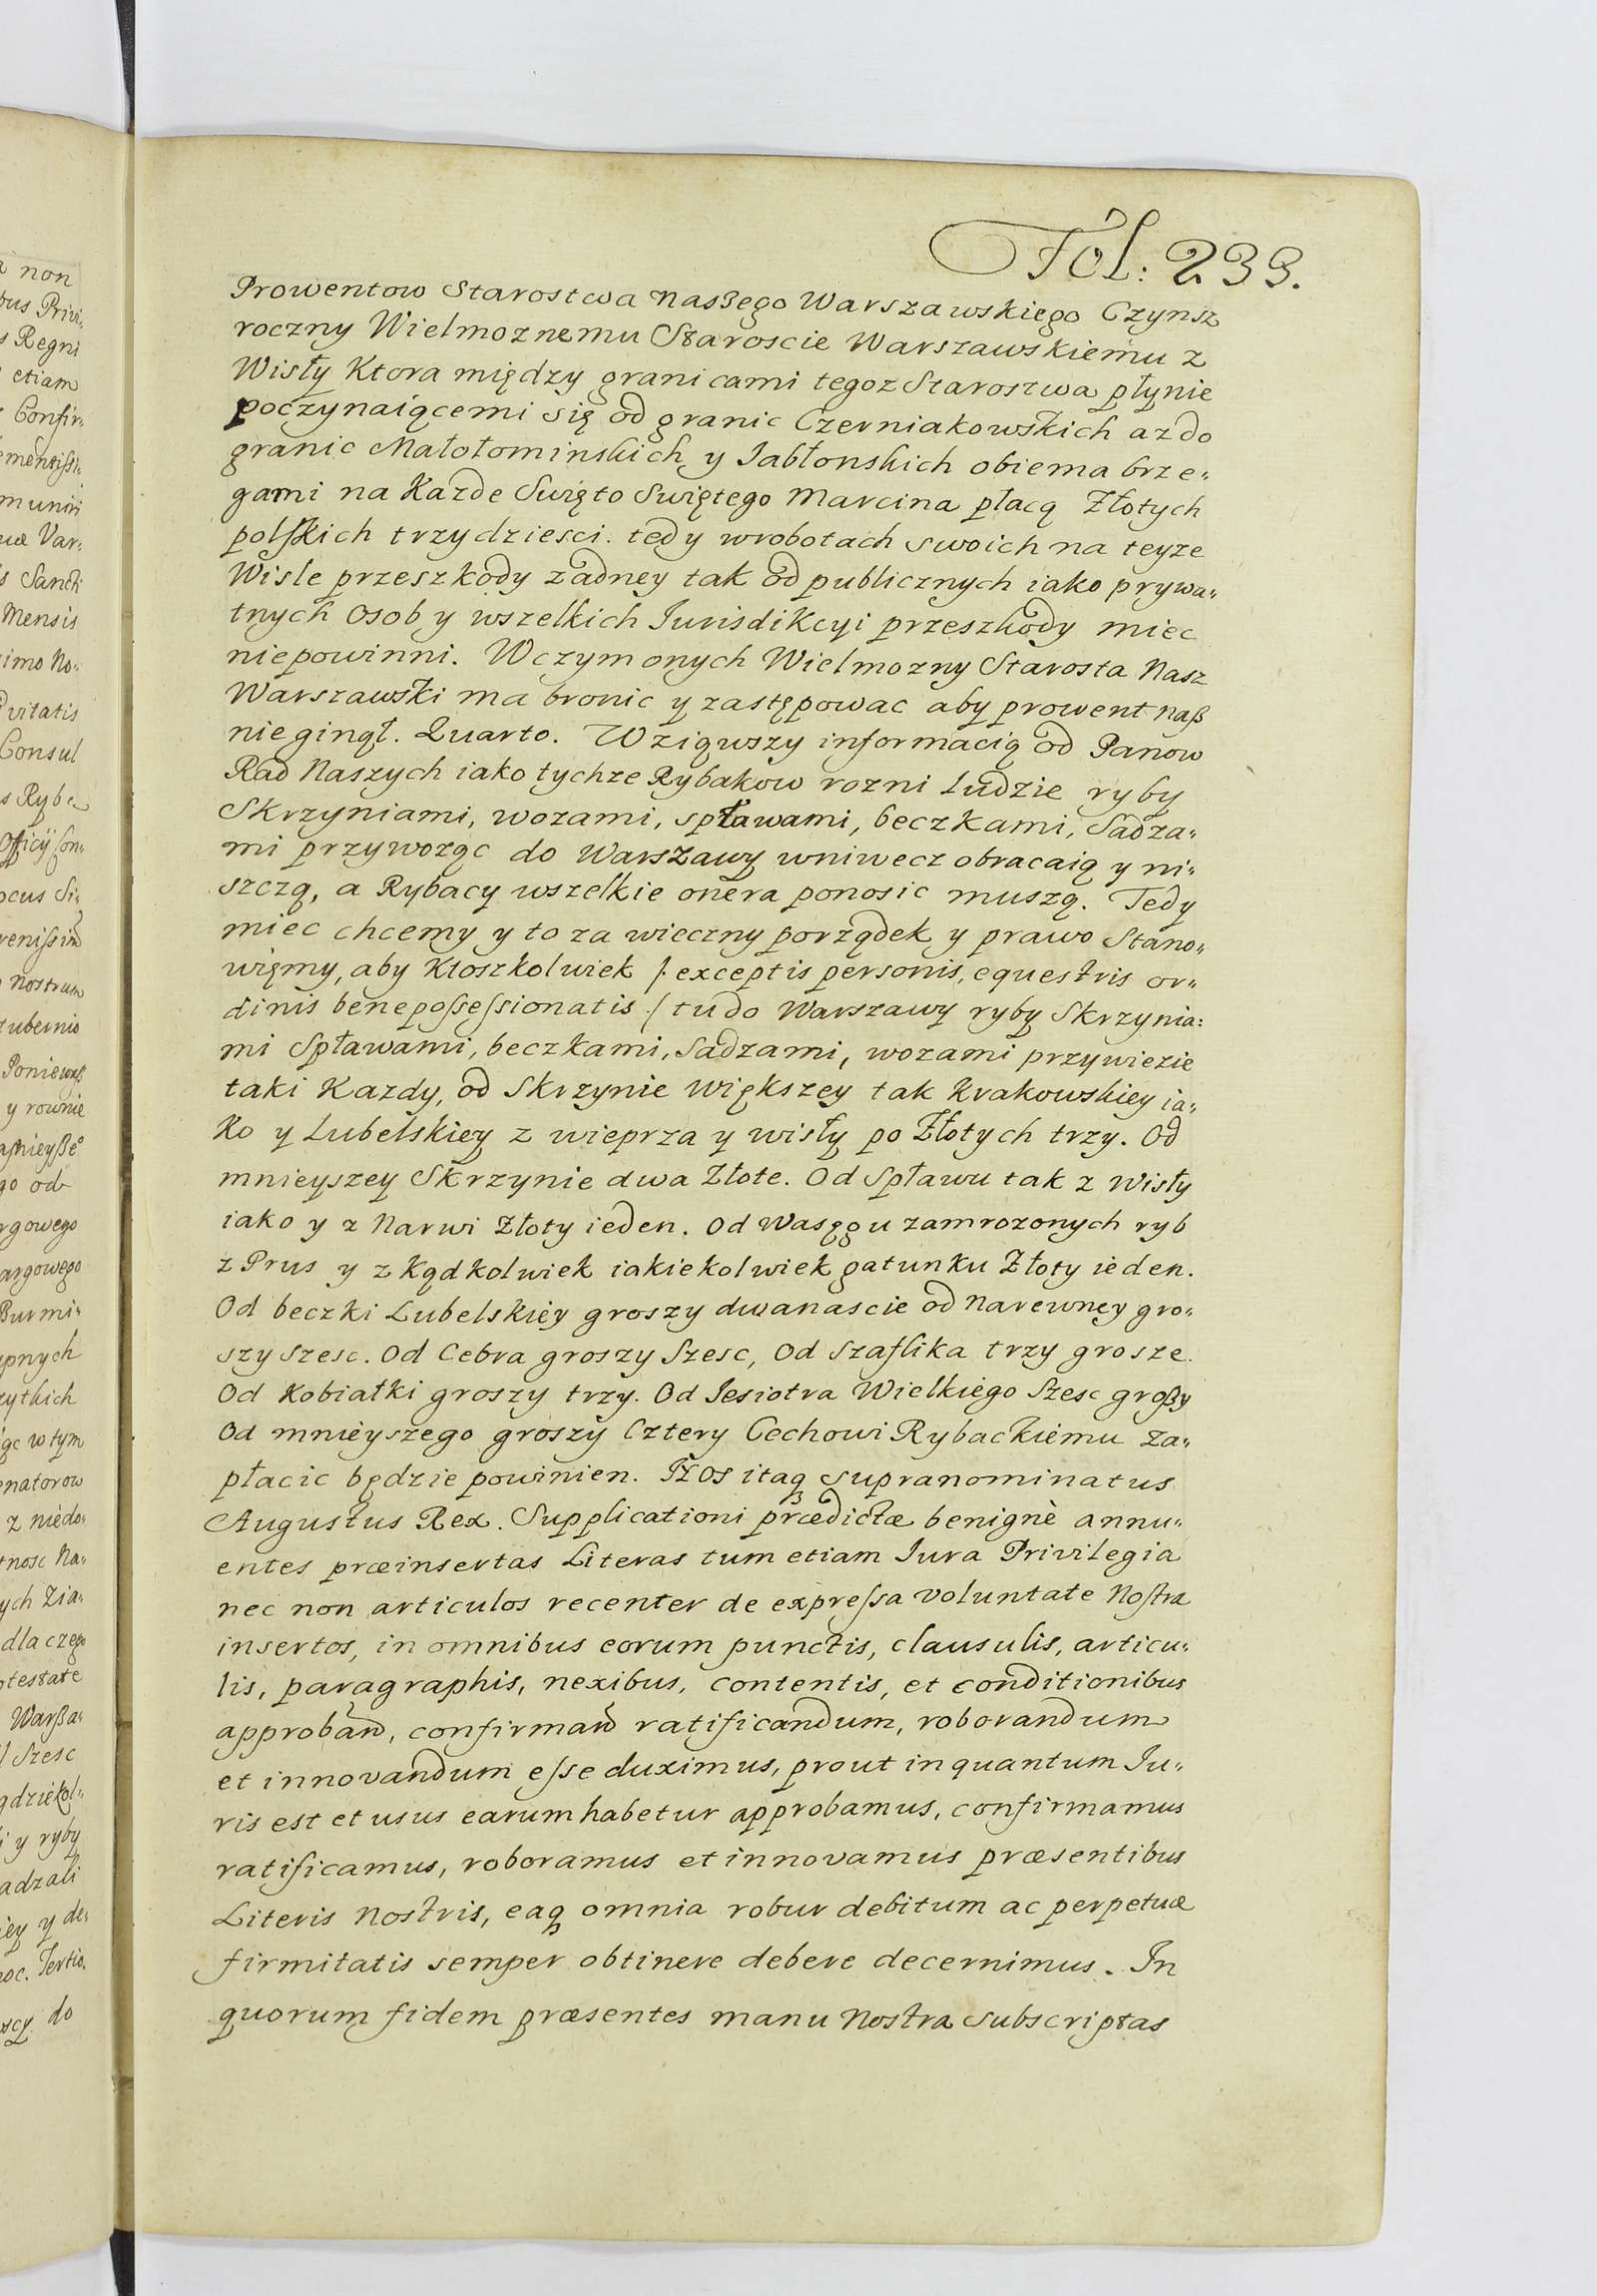 Fol: 233.
Prowentow Starostwa naszego Warszawskiego Czynsz
roczny Wielmoznemu Staroscie Warszawskiemu z
Wisły Ktora między granicami tegoz Starostwa płynie
poczynaiącemi się od granic Czerniakowskich az do
granic Małołominskich y Jabłonskich obiema brze-
gami na Kazde Swięto Swiętego Marcina płacą Złotych
polskich trzydziesci. tedy wrobotach swoich na teyze
Wisle przeszkody zadney tak od publicznych iako prywa-
tnych osob y wszelkich Jurisdikcyi przeszkody miec
niepowinni. Wczym onych Wielmozny Starosta Nasz
Warszawski ma bronic y zastępowac aby prowent naß
nieginął. Quarto. Wziąwszy informacią od Panow
Rad Naszych iako tychze Rybakow rozni ludzie ryby
Skrzyniami, wozami, spławami, beczkami, Sadza-
mi przywozgc do Warszawy wniwecz obracaią y ni-
szczą, a Rybacy wszelkie onera ponosic muszą. Tedy
miec chcemy y to za wieczny porządek y prawo Stano-
więmy, aby Ktoszkolwiek /: exceptis personis, equestris or-
dinis benepossessionatis :/ tu do Warszawy ryby Skrzynia-
mi Spławami, beczkami, Sadzami, wozami przywiezie
taki Kazdy, od Skrzynie większey tak Krakowskiey ia-
ko y Lubelskiey z wieprza y wisły po Złotych trzy. Od
mnieyszey Skrzynie dwa Złote. Od Spławu tak z Wisły
iako y z Narwi Złoty ieden. Od Wasęgu zamrozonych ryb
z Prus y z kądkolwiek iakiekolwiek gatunku Złoty ieden.
Od beczki Lubelskiey groszy dwanascie od Narewney gro-
szy szesc. Od Cebra groszy Szesc, Od Szaflika trzy grosze.
Od Kobiałki groszy trzy. Od Jesiotra Wielkiego Szesc großy
Od mnieyszego groszy Cztery Cechowi Rybackiemu za-
płacic będzie powinien. Nos itaq supranominatus
Augustus Rex. Supplicationi prædictæ benignè annu-
entes præinsertas Literas tum etiam Jura Privilegia
nec non articulos recenter de expressa voluntate Nostra
insertos, in omnibus eorum punctis, clausulis, articu-
lis, paragraphis, nexibus, contentis, et conditionibus
approband, confirmand ratificandum, roborandum
et innovandum esse duximus, prout inquantum Ju-
ris est et usus earum habetur approbamus, confirmamus
ratificamus, roboramus et innovamus præsentibus
Literis Nostris, eaq omnia robur debitum ac perpetuæ
firmitatis semper obtinere debere decernimus. In
quorum fidem præsentes manu Nostra subscriptas